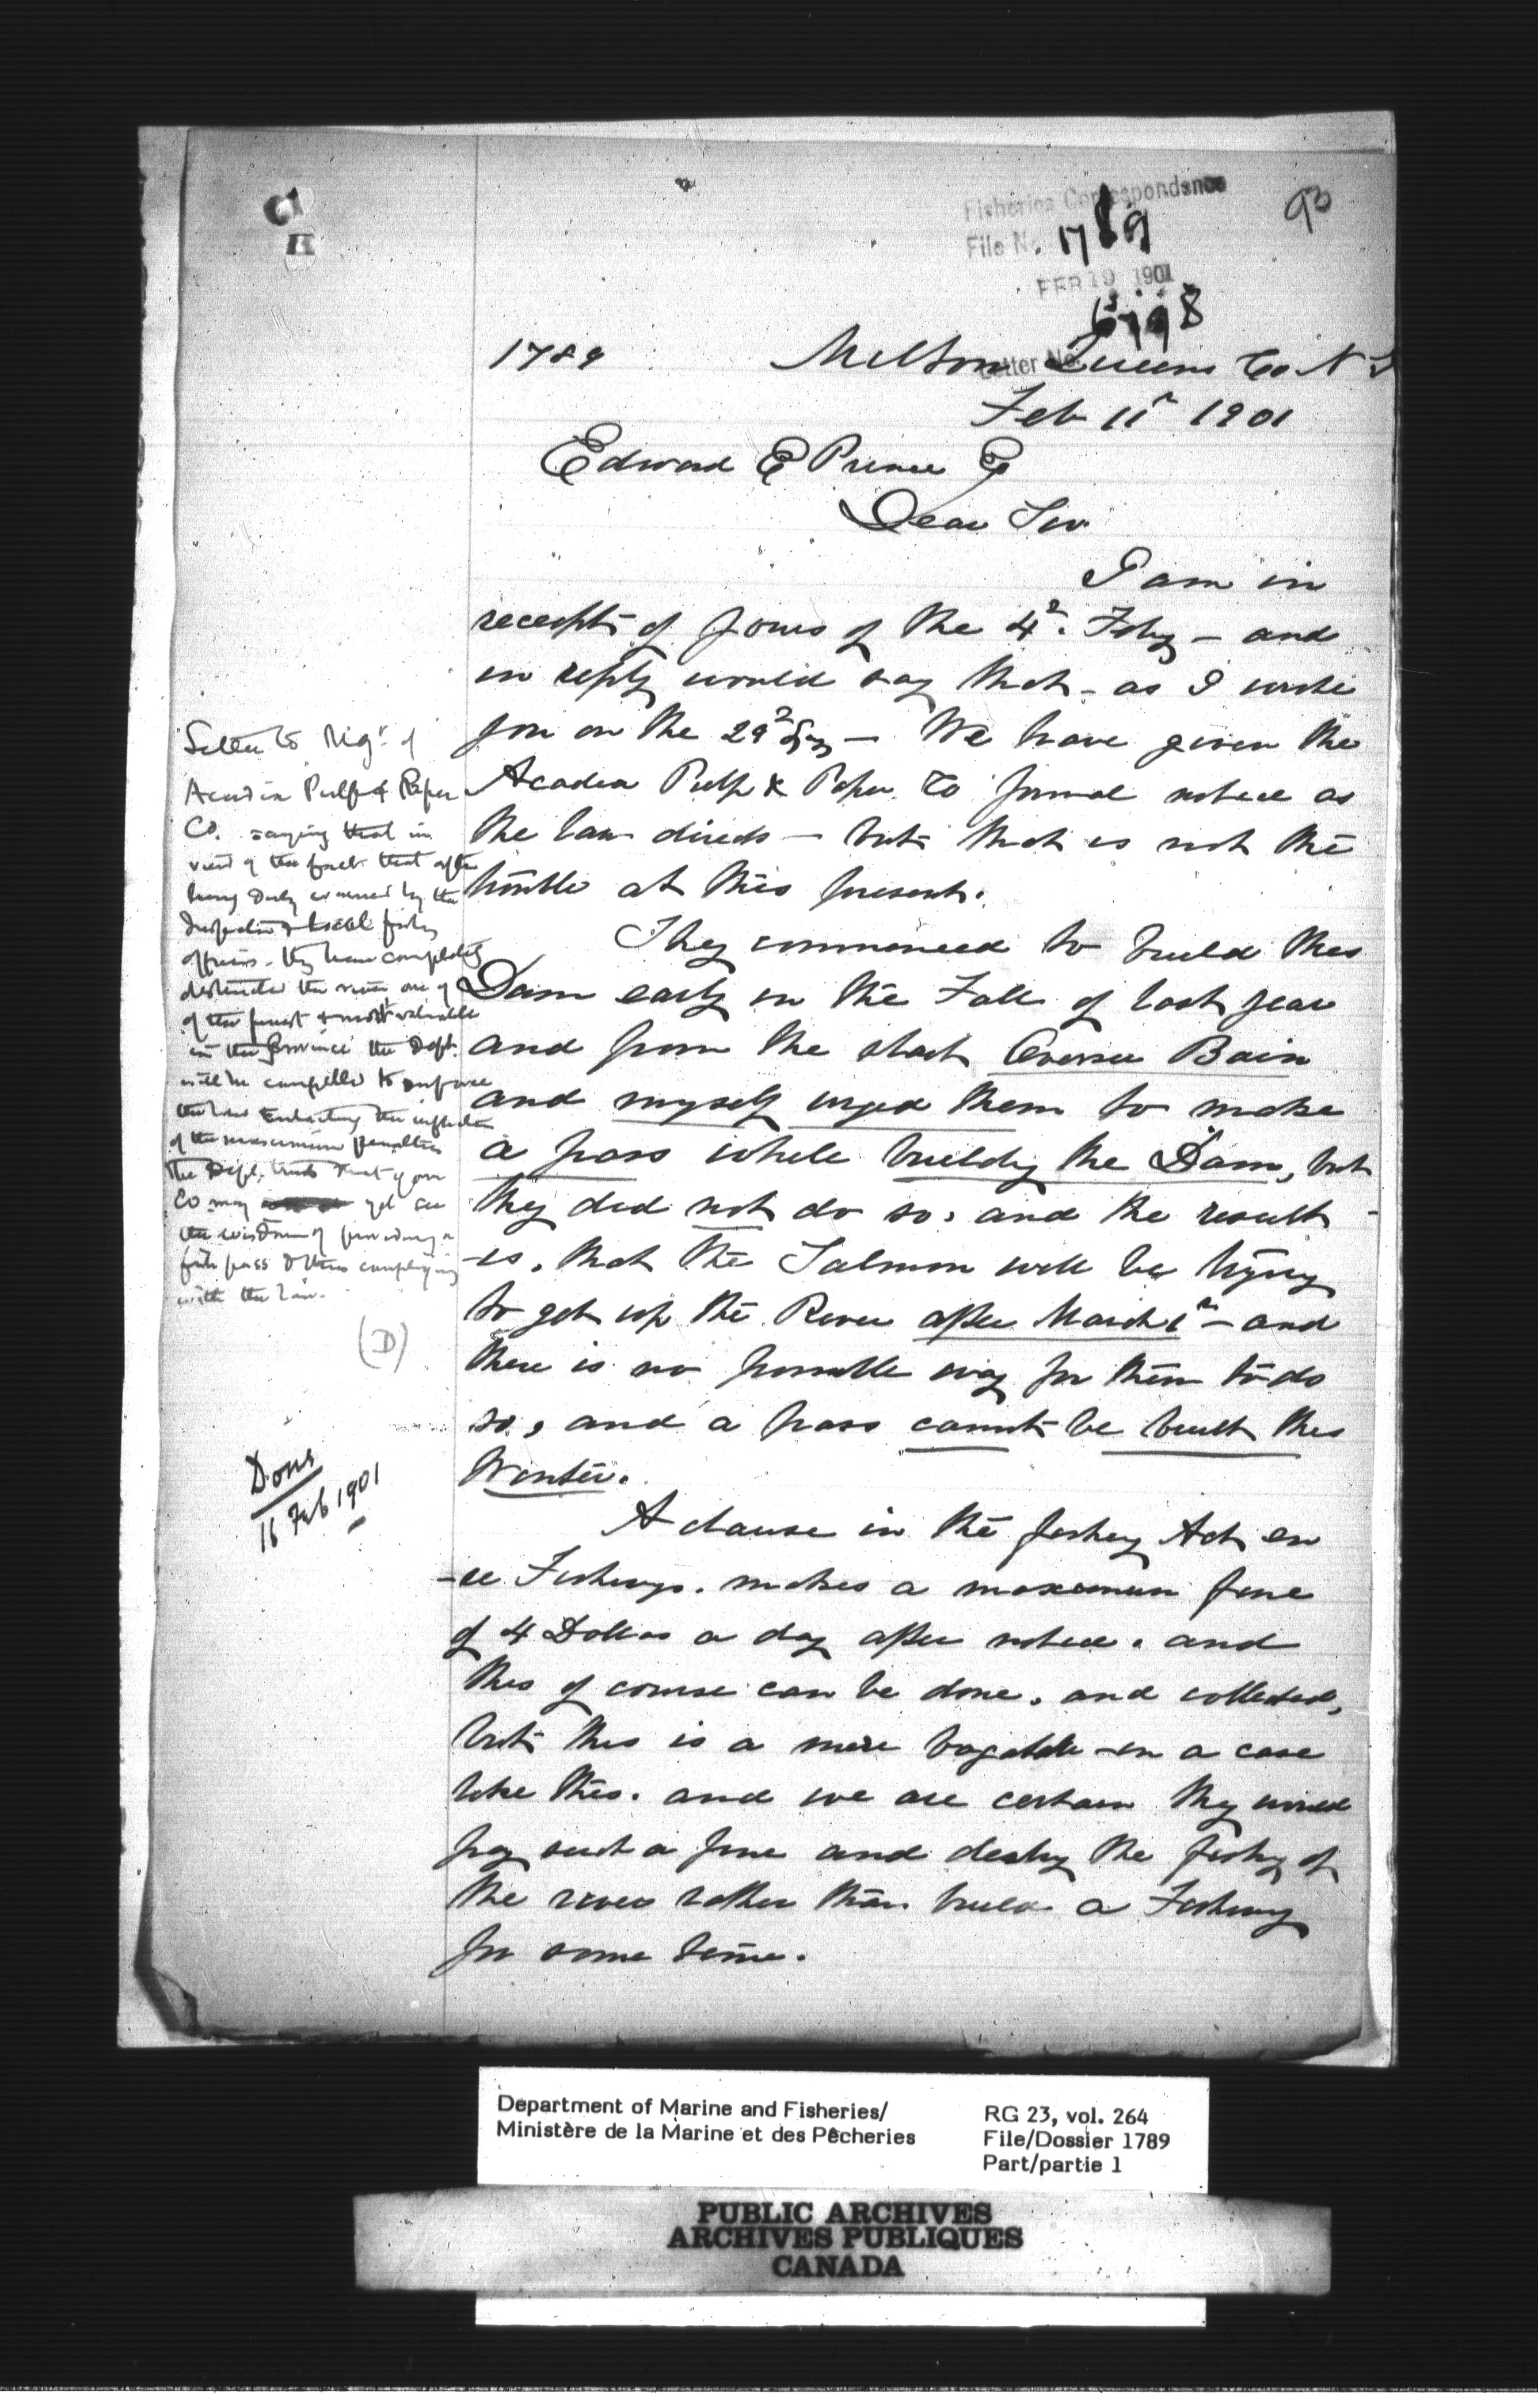 93
Fisheries Correspondence
File No. 1789
FEB 19 1901
Letter No. 6798
1789 Milton Queens Co N S
Feb 11th 1901
Edward E Prince Esq
Dear Sir
I am in
receipt of yours of the 4th. Feby – and
in reply would say that – as I wrote
you on the 29th – We have given the
Acadia Pulp & Paper Co formal notice as
the law directs – but that is not the
trouble at this present.
They commenced to build this
Dam early in the Fall of last year
and from the start Overseer Bain
and myself urged them to make
a pass while building the Dam, but
they did not do so, and the result
is, that the Salmon will be trying
to get up the River after March 1st – and
there is no possible way for them to do
so, and a pass cannot be built this
Winter.
A clause in the fishery Act on
-ce Fishways. makes a maximum fine
of 4 Dollars a day after notice. and
this of course can be done. and collected,
but this is a mere bagatelle in a case
like this. and we are certain they would
pay such a fine and destroy the fishy of
the river rather than build a Fishway
for some time.
Letter to Mgr. of
Acadia Pulp & Paper
Co. saying that in
view of the fact that after
being duly warned by the
Inspector & local fishery
officers – they have completely
obstructed the river one of
of the finest & most valuable
in the Province the Dept.
will be compelled to enforce
the law the infliction
of the maximum penalties
The Dept. trusts that your
Co may yet see
the wisdom of providing a
fish pass & thus complying
with the law.
(D)
Done
16 Feb 1901
Department of Marine and Fisheries/
Ministère de la Marine et des Pêcheries
RG 23, vol. 264
File/Dossier 1789
Part/partie 1
PUBLIC ARCHIVES
ARCHIVES PUBLIQUES
CANADA